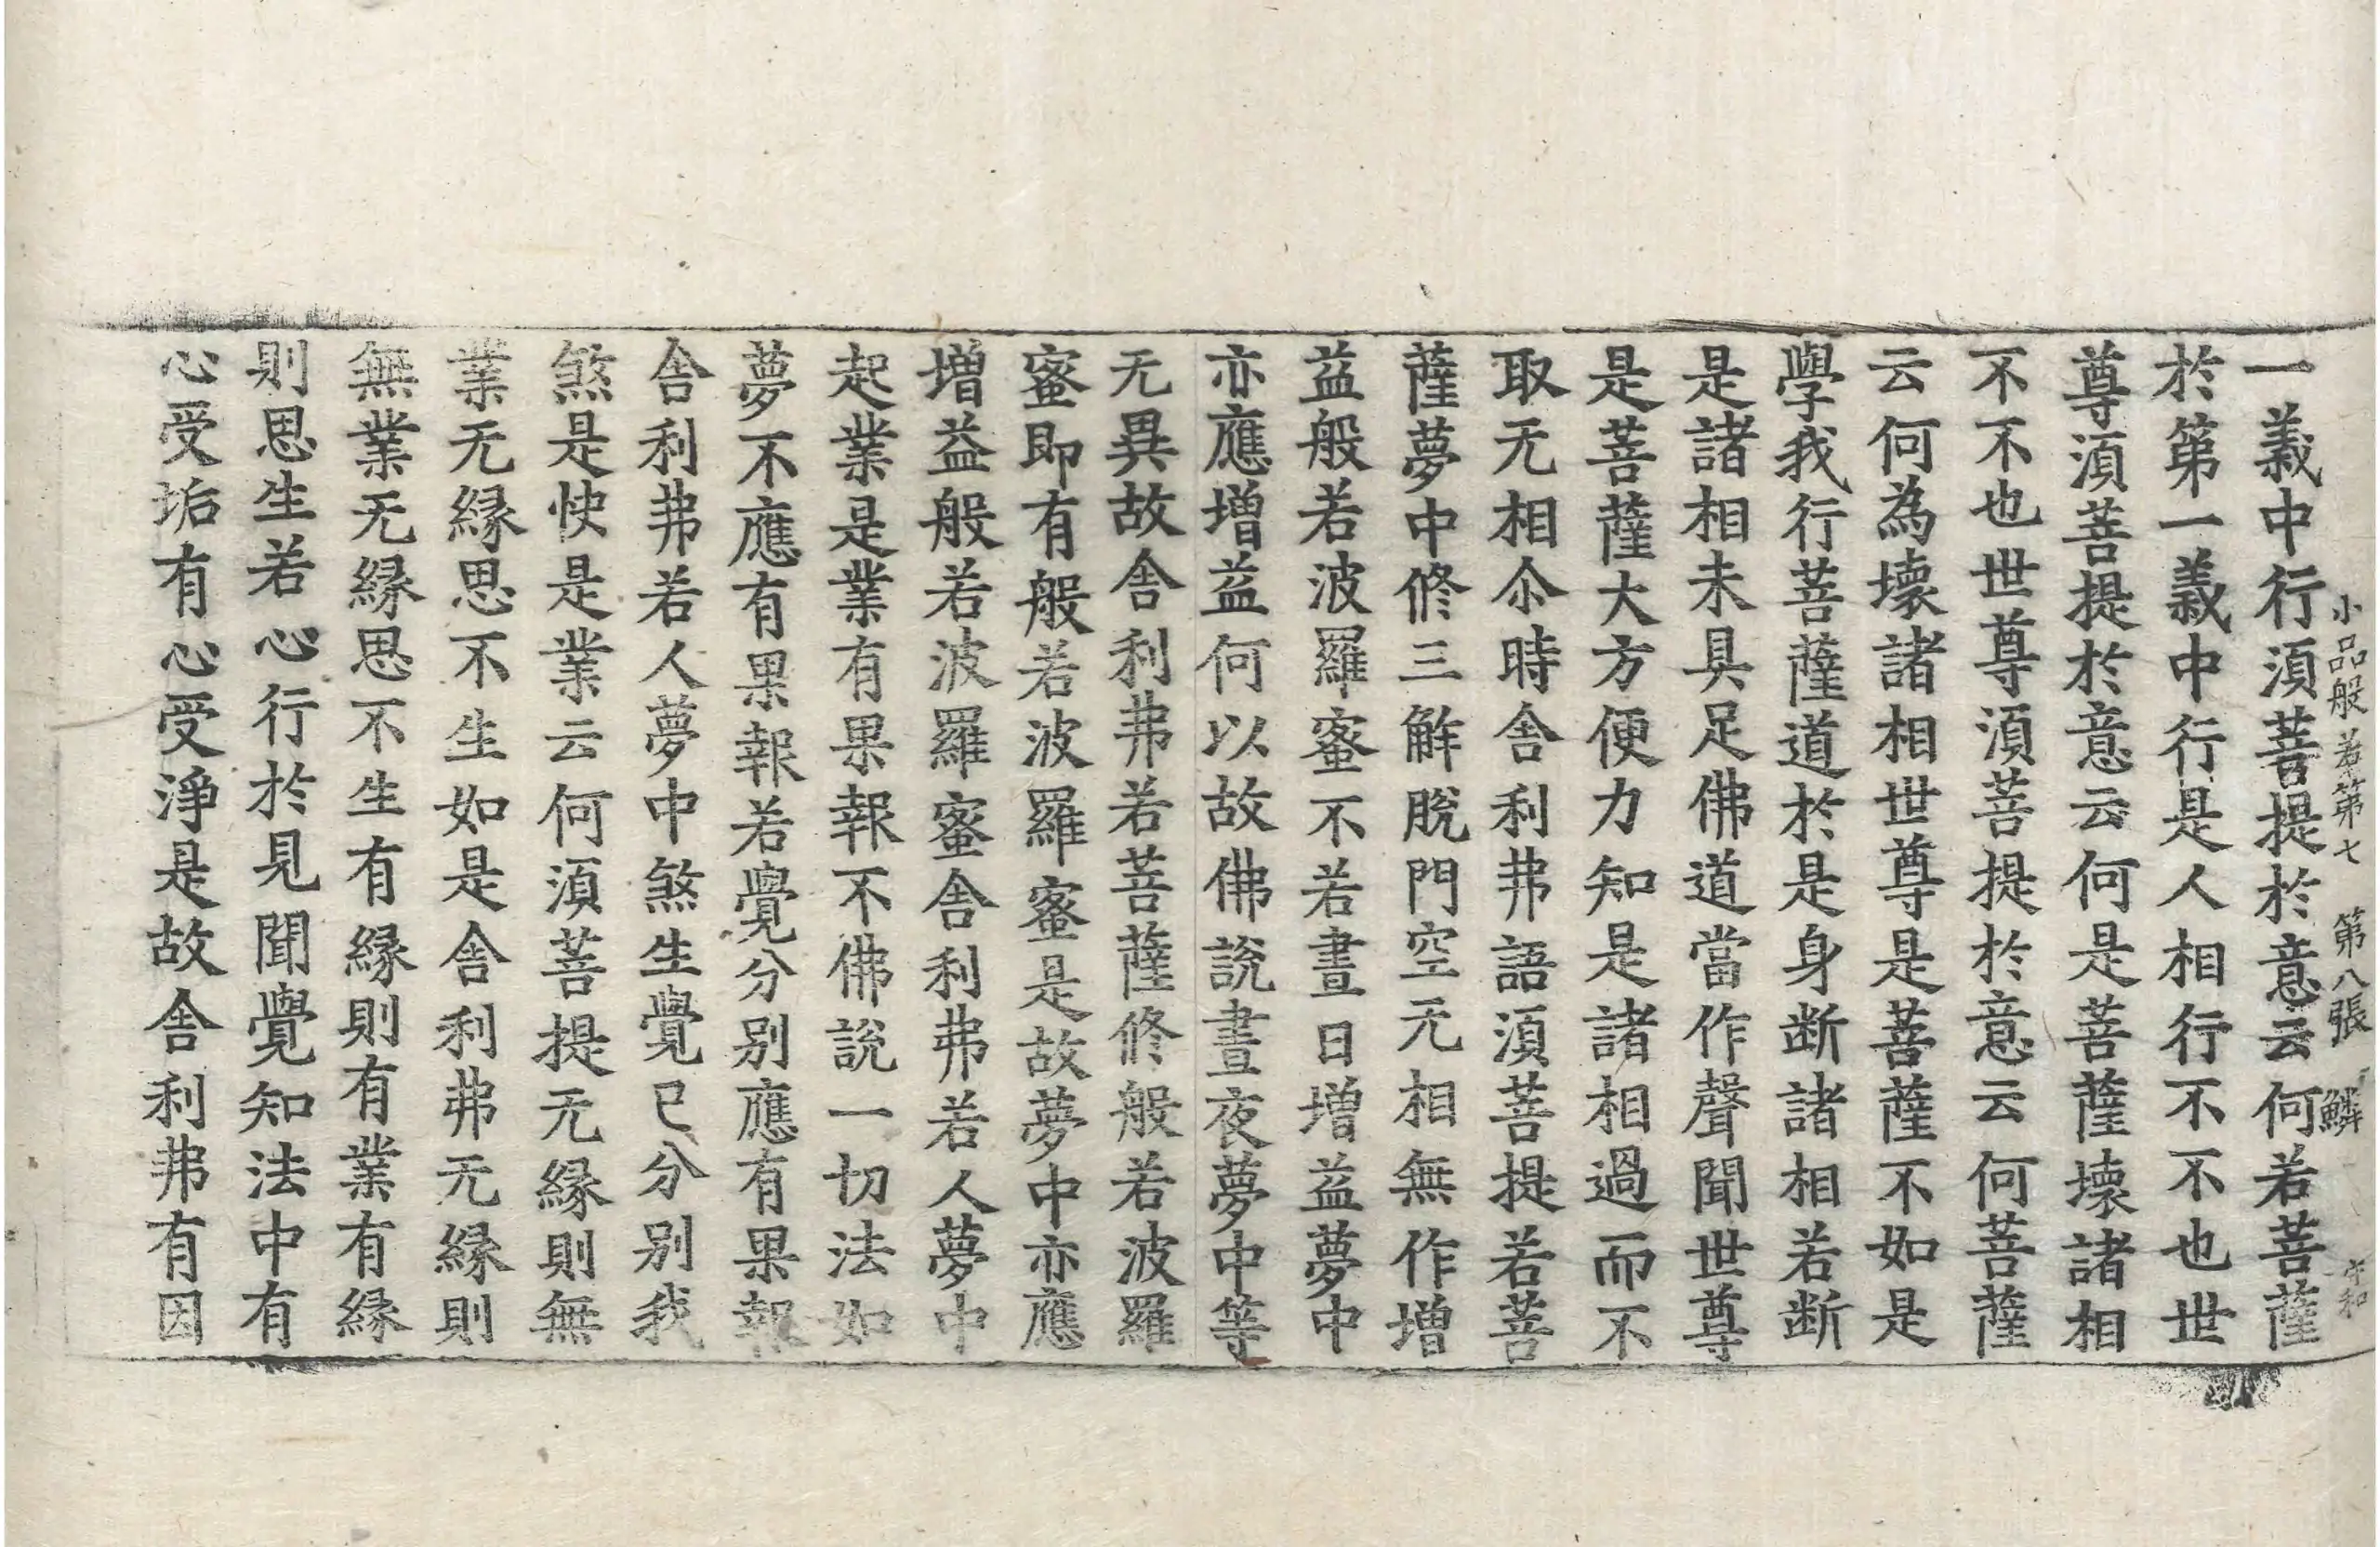 小品般若第七 第八張 鱗 守和
一義中行湏菩提於意云何若菩薩
於第一義中行是人相行不不也世
尊湏菩提於意云何是菩薩壞諸相
不不也世尊湏菩提於意云何菩薩
云何為壞諸相世尊是菩薩不如是
學我行菩薩道於是身断諸相若断
是諸相未具足佛道當作聲聞世尊
是菩薩大方便力知是諸相過而不
取无相尒時舎利弗語湏菩提若菩
薩夢中修三解脫門空无相無作增
益般若波羅蜜不若晝日增益夢中
亦應增益何以故佛說晝夜夢中等
无異故舎利弗若菩薩修般若波羅
蜜即有般若波羅蜜是故夢中亦應
增益般若波羅蜜舎利弗若人夢中
起業是業有果報不佛說一切法如
夢不應有果報若覺分别應有果報
舎利弗若人夢中煞生覺已分别我
煞是快是業云何湏菩提无縁則無
業无縁思不生如是舎利弗无縁則
無業无縁思不生有縁則有業有縁
則思生若心行於見聞覺知法中有
心受垢有心受淨是故舎利弗有因